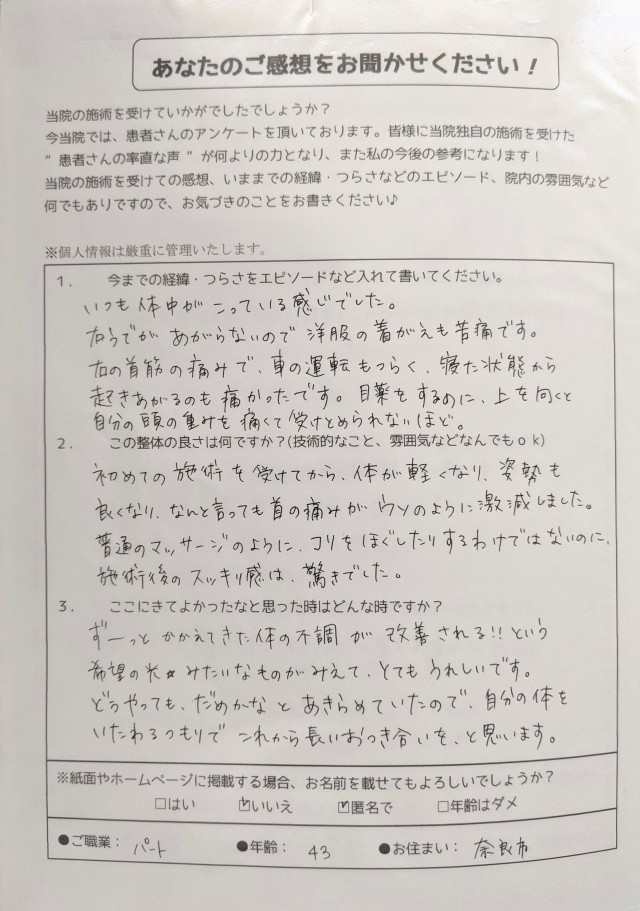 あなたのご感想をお聞かせください！
当院の施術を受けていかがでしたでしょうか？
今当院では、患者さんのアンケートを頂いております。皆様に当院独自の施術を受けた
”患者さんの率直な声 ”が何よりの力となり、また私の今後の参考になります！
当院の施術を受けての感想、いままでの経緯・つらさなどのエピソード、院内の雰囲気など
何でもありですので、お気づきのことをお書きください♪
※個人情報は厳重に管理いたします。
１． 今までの経緯・つらさをエピソードなど入れて書いてください。
いつも体中がこっている感じでした。
右うでがあがらないので洋服の着がえも苦痛です。
右の首筋の痛みで、車の運転もつらく、寝た状態から
起きあがるのも痛かったです。目薬をするのに、上を向くと
自分の頭の重みを痛くて受けとめられないほど。
２． この整体の良さは何ですか？(技術的なこと、雰囲気などなんでもｏｋ)
初めての施術を受けてから、体が軽くなり、姿勢も
良くなり、なんと言っても首の痛みがウソのように激減しました。
普通のマッサージのように、コリをほぐしたりするわけではないのに、
施術後のスッキリ感は、驚きでした。
３． ここにきてよかったなと思った時はどんな時ですか？
ずーっとかかえてきた体の不調が改善される!!という
希望の光☆みたいなものがみえて、とてもうれしいです。
どうやっても、だめかなとあきらめていたので、自分の体を
いたわるつもりでこれから長いおつき合いを、と思います。
※紙面やホームページに掲載する場合、お名前を載せてもよろしいでしょうか？
□はい ☑いいえ ☑匿名で □年齢はダメ
●ご職業： パート ●年齢： 43 ●お住まい： 奈良市